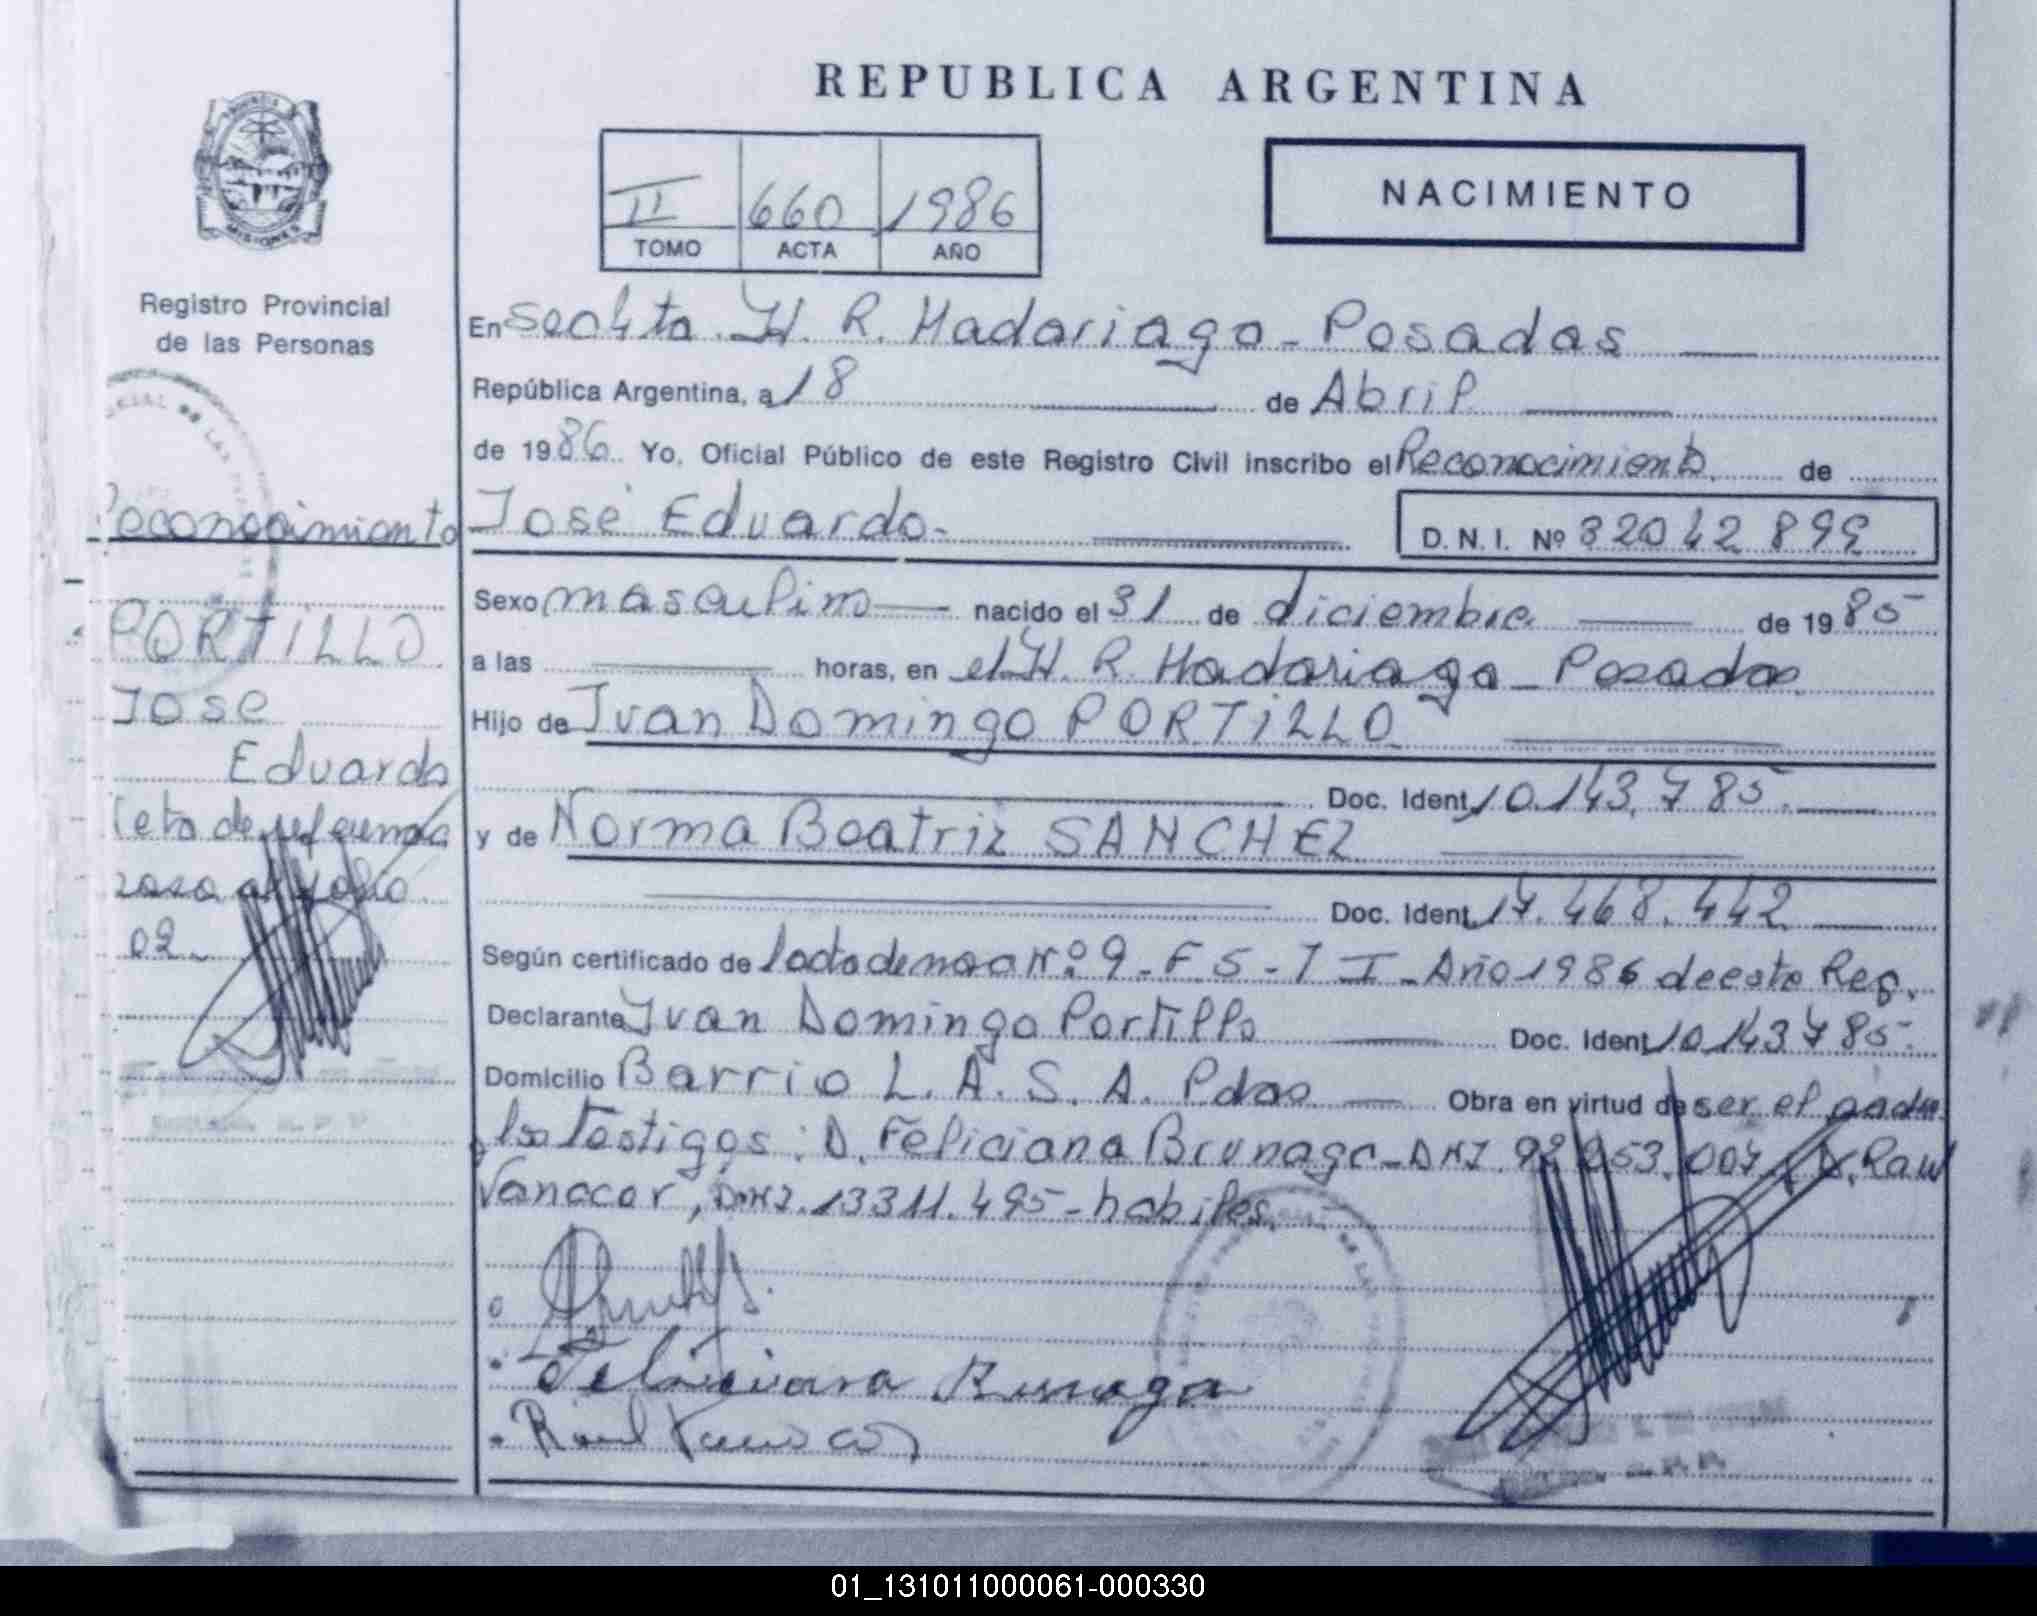 REPUBLICA ARGENTINA
II 660 1986
TOMO ACTA AÑO
NACIMIENTO
MISIONES
Registro Provincial
de las Personas
Reconocimiento
PORTILLO
Jose
Eduardo
02.
En H. R. Madariaga - Posadas
República Argentina, a 18 de Abril
de 1986. Yo, Oficial Público de este Registro Civil inscribo el Reconocimiento de
José Eduardo.
D. N. I. Nº 32042899
Sexo masculino nacido el 31 de diciembre de 1985
a las horas, en el H. R. Madariaga - Posadas
Hijo de Ivan Domingo PORTILLO
Doc. Ident. 10.143.785.
y de Norma Beatriz SANCHEZ
Doc. Ident. 17.468.442
Según certificado de Nº 9 - F 5 - T I - Año 1986 de este Reg.
Declarante Ivan Domingo Portillo Doc. Ident. 10.143785.
Domicilio Barrio L. A. S. A. Pdas Obra en virtud de ser el padre
los Testigos: D. Feliciana Brunaga - DNI. 92.053.007, D. Raul
Vanacor, DNI. 13311.495 - habiles.
Feliciana Brunaga
Raul
01_131011000061-000330